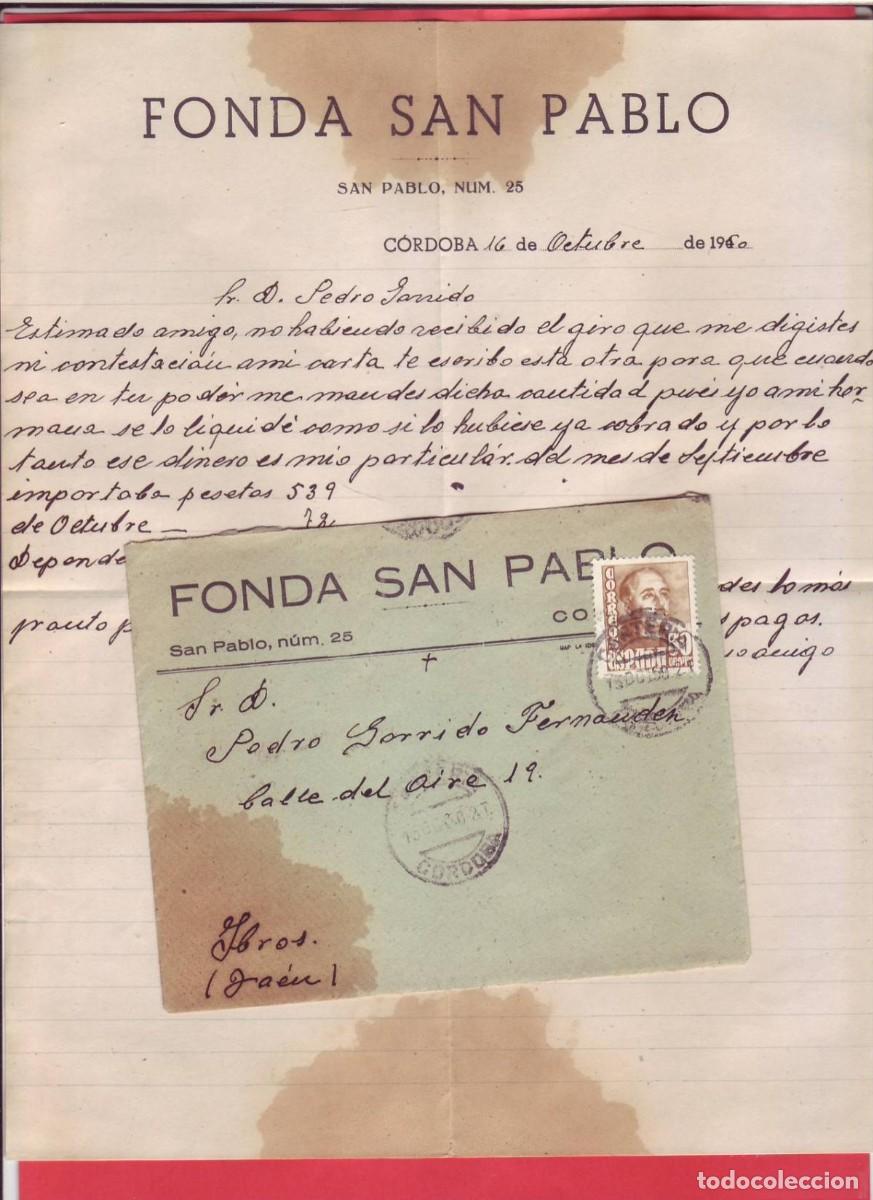 FONDA SAN PABLO
SAN PABLO, NUM. 25
CÓRDOBA 16 de Octubre de 1950
Sr. D. Pedro Garrido
Estimado amigo, no habiendo recibido el giro que me digistes
ni contestación ami carta te escribo esta otra para que cuando
sea en tu podér me mandes dicha cantidad pués yo ami her-
mana se lo liquidé como si lo hubiese ya cobrado y por lo
tanto ese dinero es mio particulár. del mes de Septiembre
importaba pesetas 539
de Octubre — 72
Depende
des lo más
pronto p
s pagos.
amigo
FONDA SAN PABLO
San Pablo, núm. 25
CO
Sr. D.
Pedro Garrido Fernandez
Calle del Aire 19.
Ibros.
(Jaén)
CORREOS
CARTERIA
CORDOBA
todocoleccion